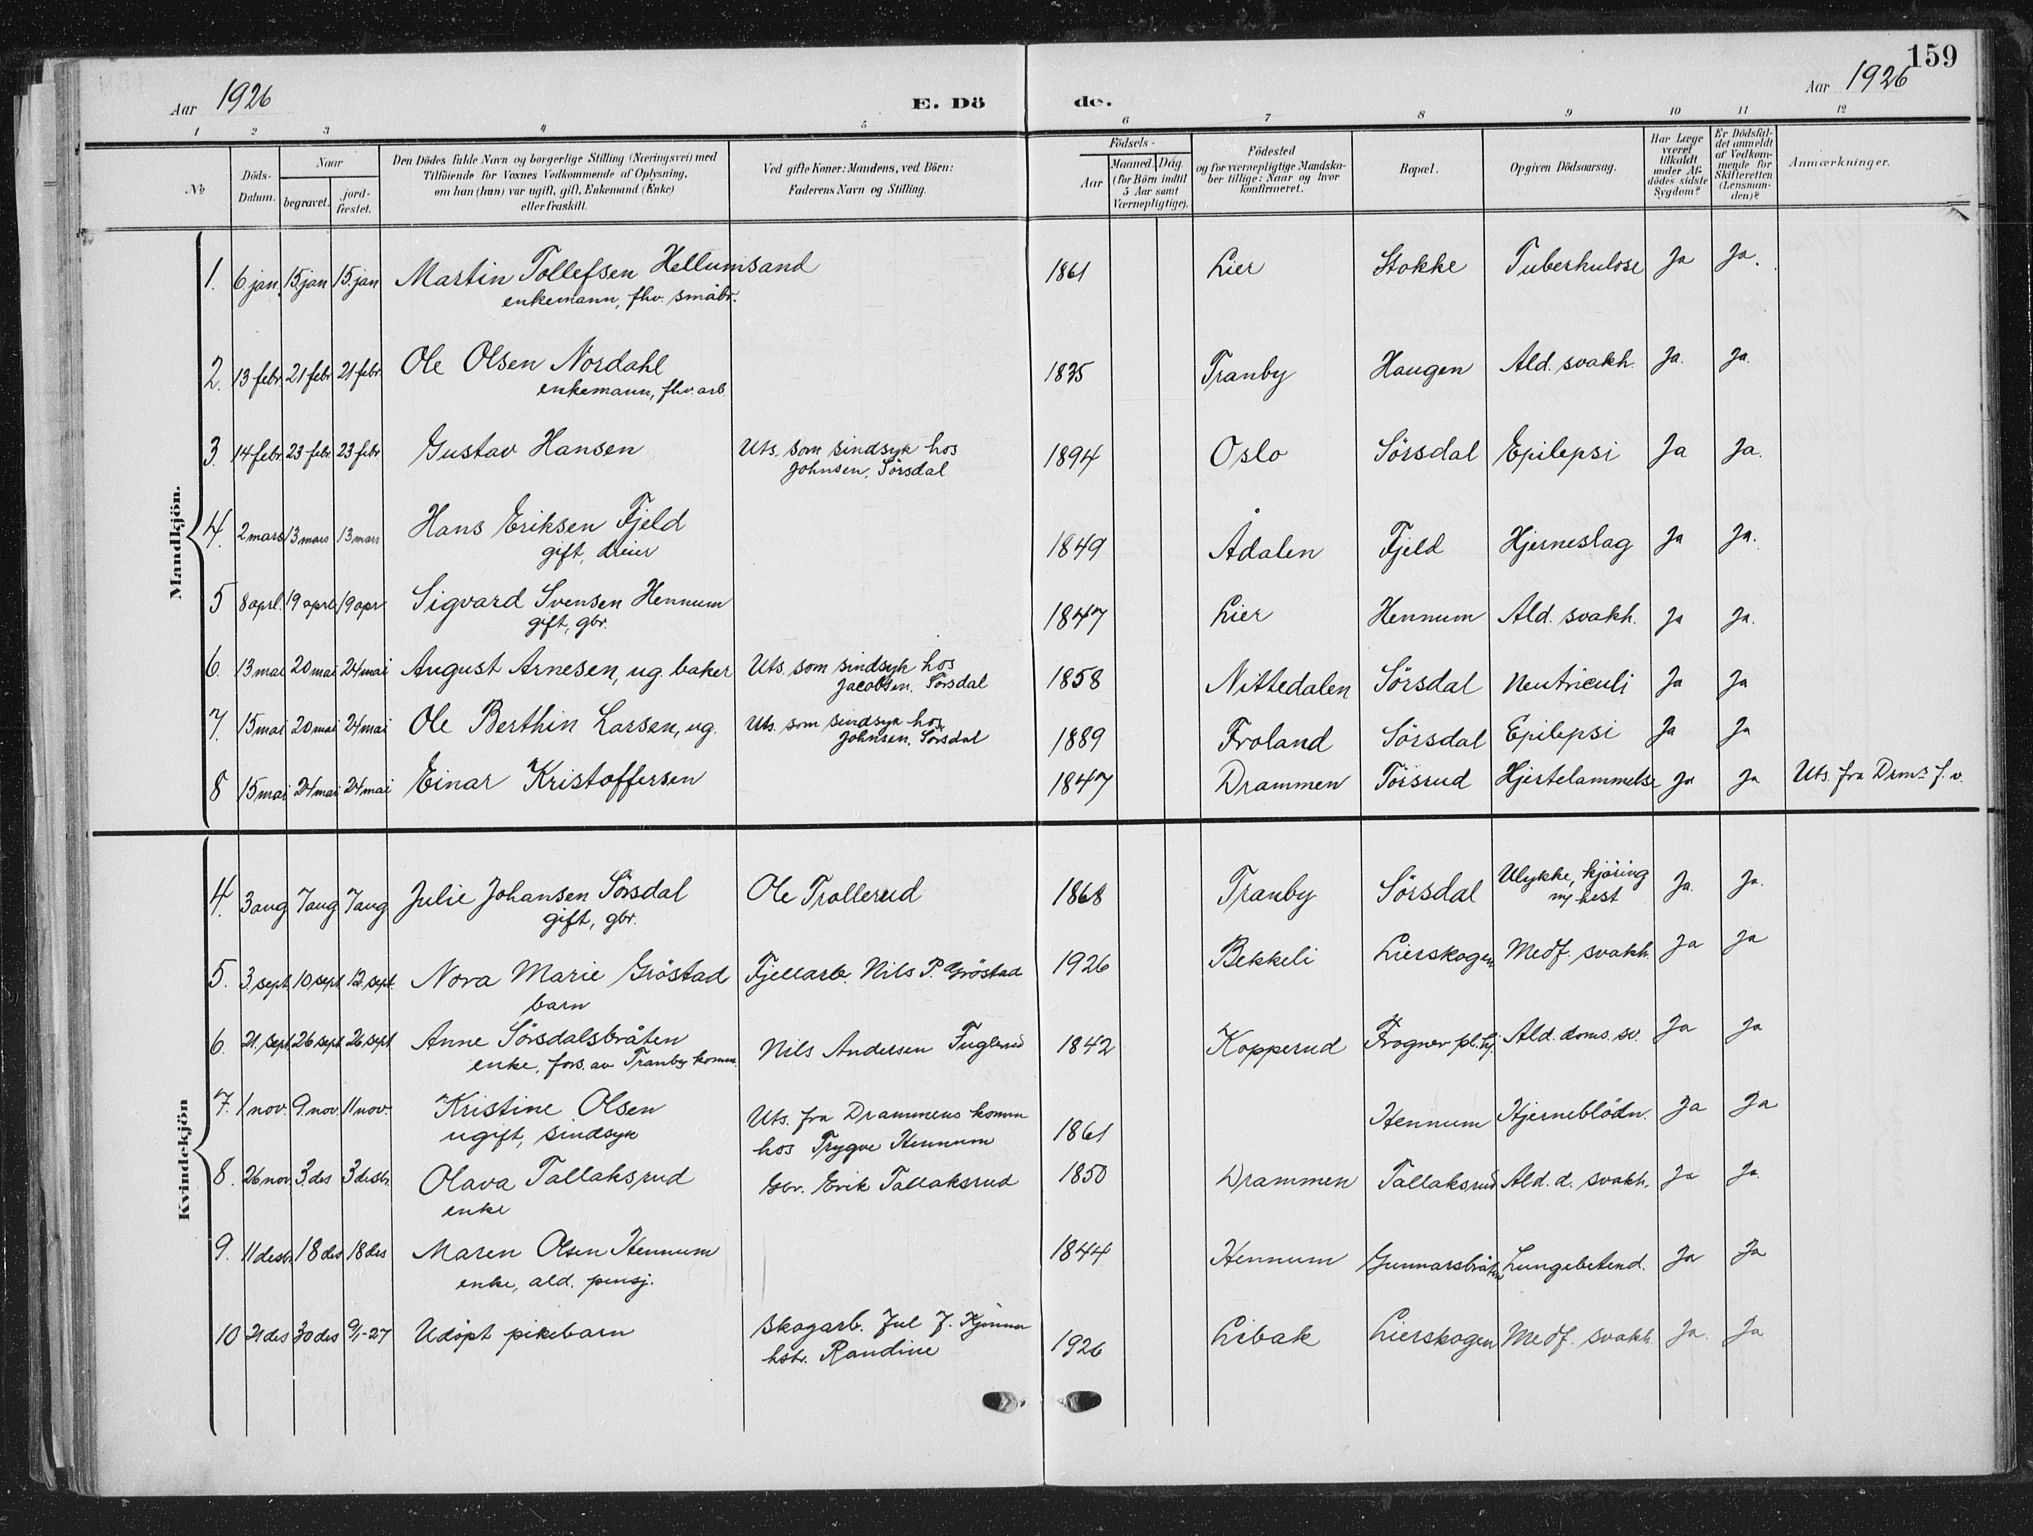 159
Aar 1926
E. Dö de.
Aar 1926
1 2 3 4 5 6 7 8 9 10 11 12
No
Döds-Datum.
Naar
begravet.
jord-fæstet.
Den Dödes fulde Navn og borgerlige Stilling (Næringsvei) med
Tilföiende for Voxnes Vedkommende af Oplysning,
om han (hun) var ugift, gift, Enkemand (Enke)
eller fraskilt.
Ved gifte Koner: Mandens, ved Börn:
Faderens Navn og Stilling.
Födsels-
Aar
Maaned. Dag.
(for Börn indtil
5 Aar samt
Værnepligtige).
Födested
og for værnepligtige Mandska-
ber tillige: Naar og hvor
konfirmeret.
Bopæl.
Opgiven Dödsaarsag.
Har Læge
været
tilkaldt
under Af-
dødes sidste
Sygdom?
Er Dödsfal-
det anmeldt
af Vedkom-
mende for
Skifteretten
(Lensman-
den)?
Anmærkninger.
Mandkjön.
1. 6 jan. 15 jan 15. jan Martin Tollefsen Hellumsand 1861 Lier Stokke Tuberkulose Ja Ja.
enkemann, fhv. småbr.
2. 13 febr. 21 febr 21 febr. Ole Olsen Nordahl 1835 Tranby Haugen Ald. svakh. Ja. Ja.
enkemann, fhv. arb.
3. 14 febr. 23 febr. 23 febr Gustav Hansen Uts. som sindsyk hos 1894 Oslo Sörsdal Epilepsi Ja Ja.
Johnsen, Sörsdal
4. 2 mars 13 mars 13 mars Hans Eriksen Fjeld 1849 Ådalen Fjeld Hjerneslag Ja Ja.
gift, eier
5 8 apr. 19 apr. 19 apr Sigvard Svensen Hennum 1847 Lier Hennum Ald. svakh. Ja Ja.
gift, gbr.
6. 13 mai 20 mai 24 mai August Arnesen, ug. baker Uts. som sindsyk hos 1858 Nittedalen Sörsdal Ja Ja
Jacobsen, Sörsdal
7. 15 mai 20 mai 24 mai Ole Berthin Larsen, ug. Uts. som sindsyk hos 1889 Froland Sörsdal Epilepsi Ja Ja
Johnsen, Sörsdal
8 15 mai 24 mai 24 mai Einar Kristoffersen 1847 Drammen Hjertelammelse Ja Ja Uts. fra Drms. f. v.
Kvindekjön
4. 3 aug 7 aug 7 aug Julie Johansen Sörsdal Ole Trollerud 1868 Tranby Sörsdal Ulykke, kjöring Ja. Ja.
gift, gbr. m/ hest
5. 3. sept. 10. sept 12. sept. Nora Marie Gröstad Fjellarb. Nils P. Gröstad 1926 Bekkeli Lierskogen Medf. svakh. Ja Ja
barn
6. 21. sept. 26 sept 26 sept Anne Sörsdalsbråten Nils Andersen Fuglerud 1842 Kopperud Frogner pl. hj. Ald. doms. sv. Ja Ja
enke, fors. av Tranby komm.
7. 1 nov. 9. nov. 11 nov. Kristine Olsen Uts. fra Drammens komm 1861 Hennum Hjerneblödn. Ja Ja
ugift, sindsyk hos Trygve Hennum
8. 26 nov. 3. des 3 desbr. Olava Tallaksrud Gbr. Erik Tallaksrud 1850 Drammen Tallaksrud Ald. d. svakh. Ja Ja.
enke
9. 11 desbr. 18 des 18 des Maren Olsen Hennum 1844 Hennum Gunnarsbråten Lungebetend. Ja Ja
enke, ald. pensj.
10 21 des 30 des 9/1-27 Udöpt pikebarn Skogarb. Jul J. 1926 Libak Lierskogen Medf. svakh. Ja. Ja
hstr. Randine